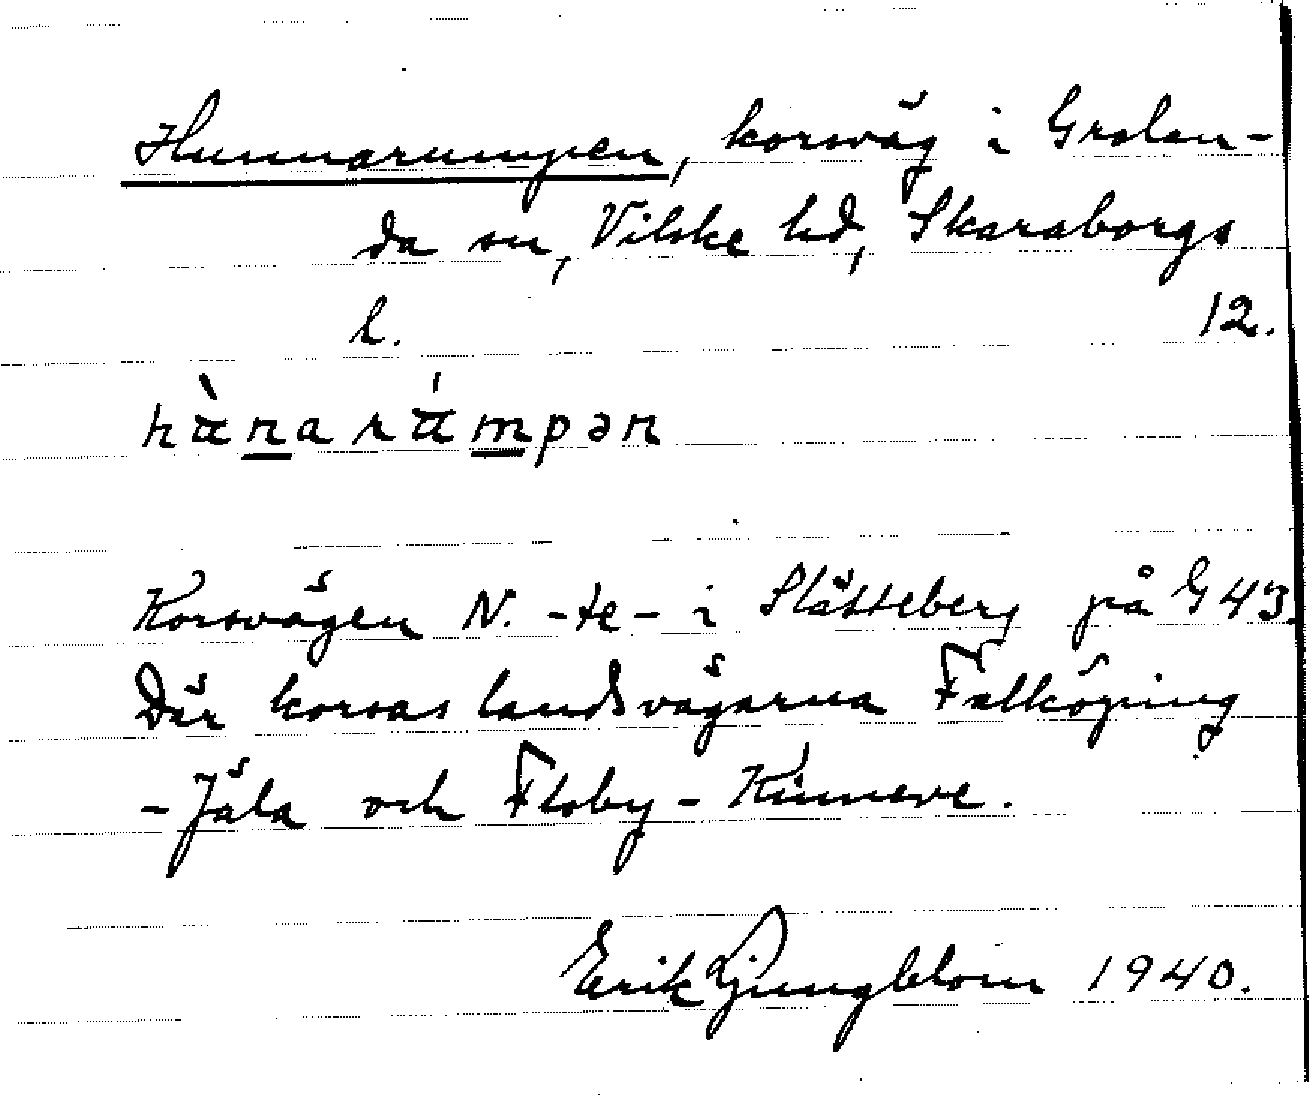 Hunnarumpen, korsväg i Grolan-
da sn, Vilske hd, Skaraborgs
l. 12.
Korsvägen N. -te- i Slätteberg på G 43.
Där korsas landsvägarna Falköping
- Jäla och Floby - Kinneve.
Erik Ljungblom 1940.